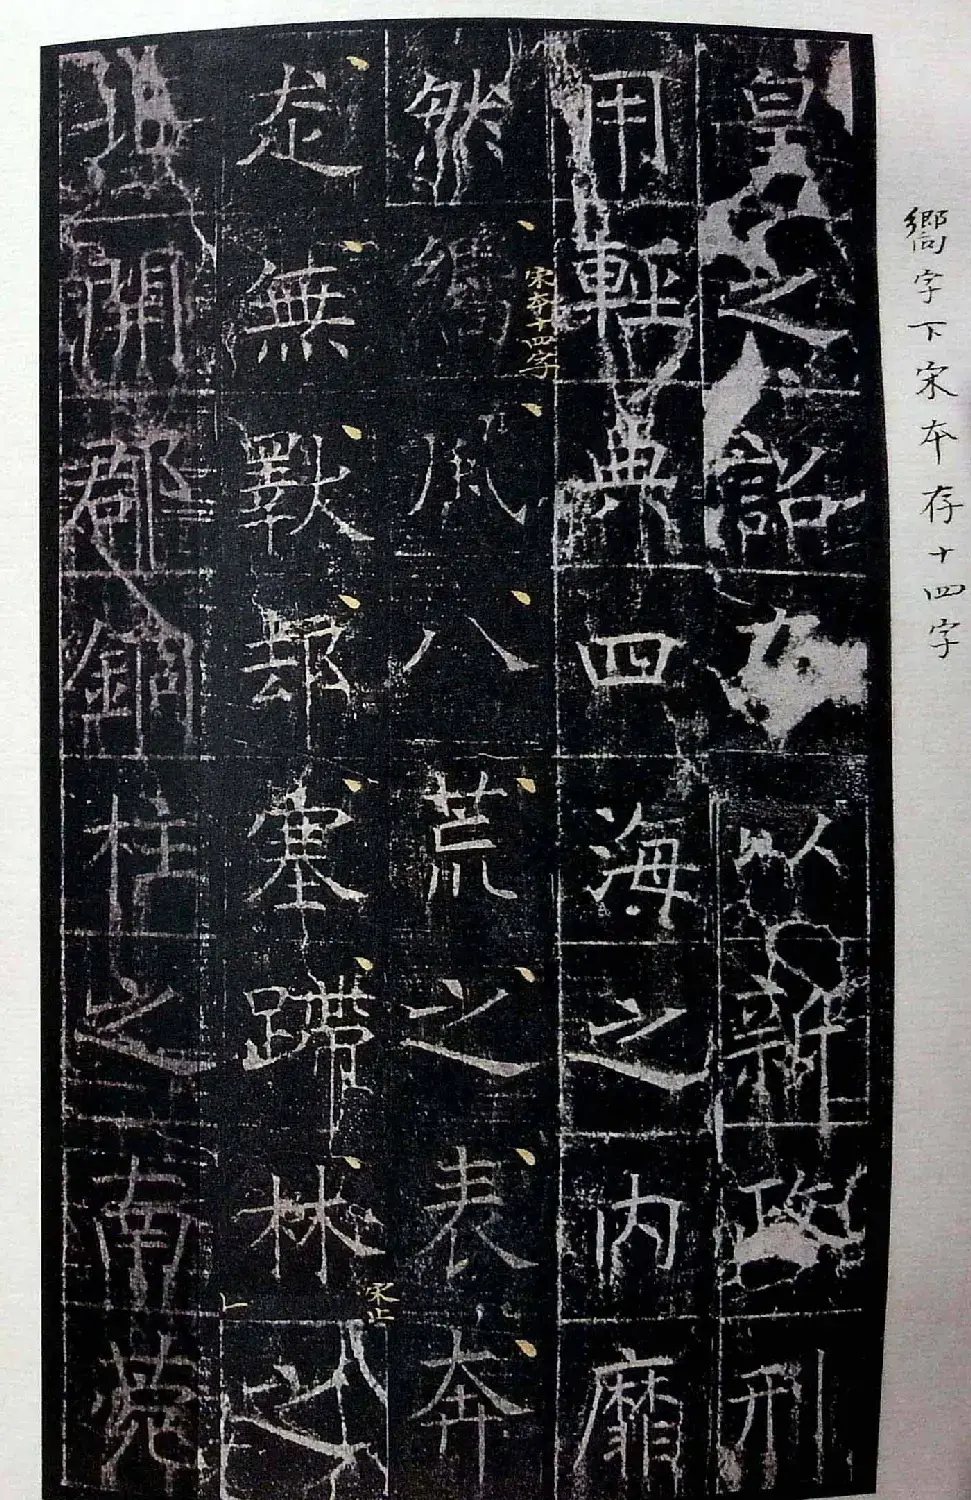 嚮字下宋本存十四字
皇之詔方以新政刑
用輕典四海之内靡
然嚮風八荒之表奔
宋存十四字
走無斁塞蹛林之
宋止
北開郡銅柱之南